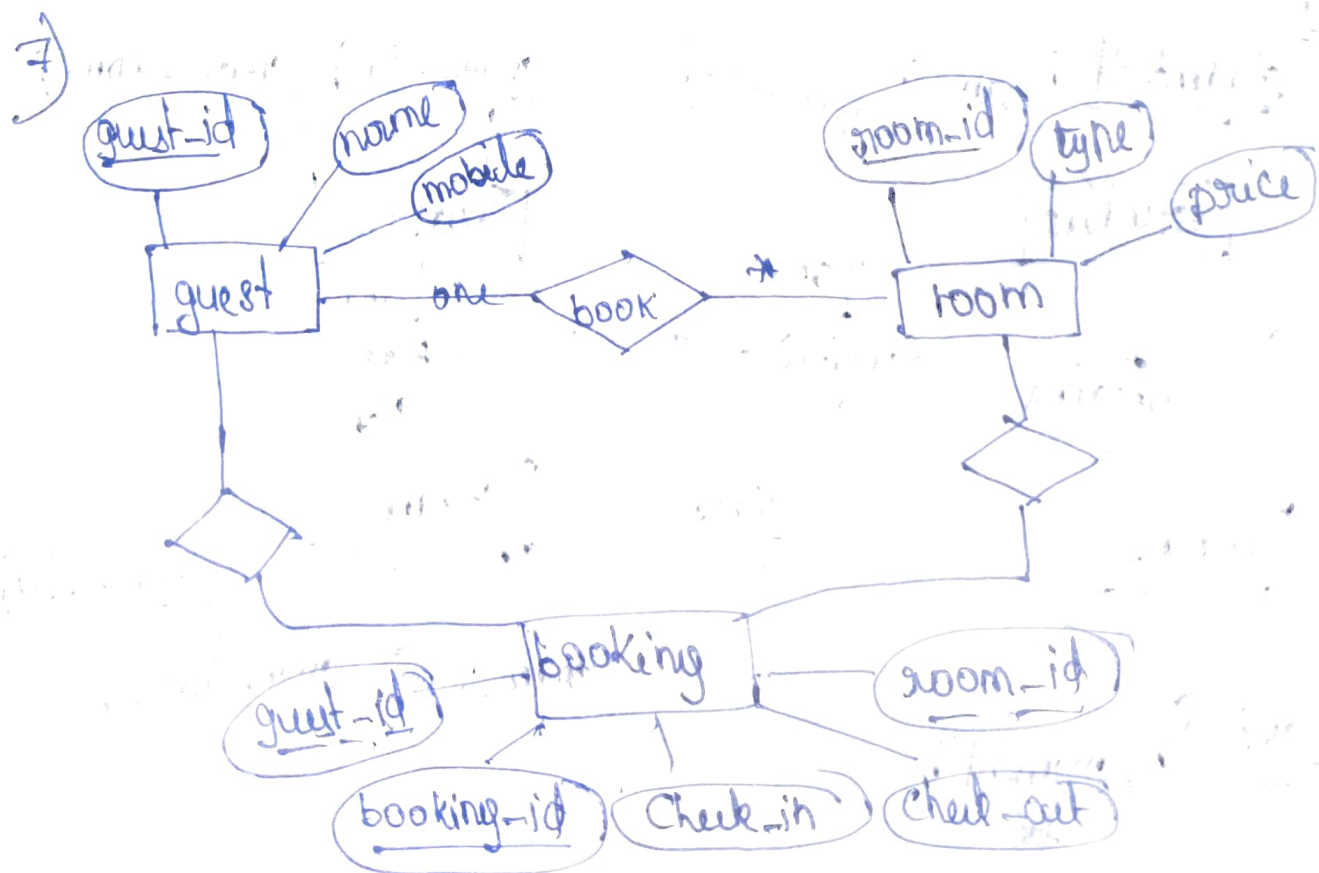 7)
guest_id
name
mobile
room_id
type
price
guest
one
book
*
room
booking
guest_id
room_id
booking_id
Check_in
check_out